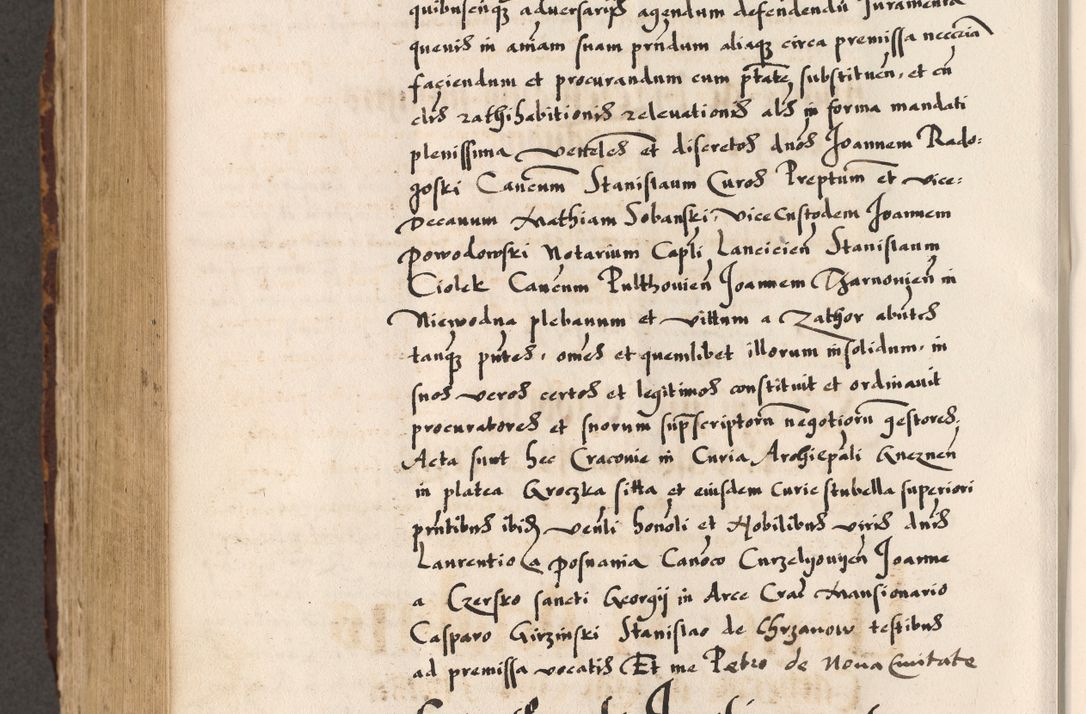 quibuscunq adversarys agendum defendendu Juramenta
quevis in amam suam prndum aliaq circa premissa necceia
faciendum et procurandum cum ptate substituen, et cu
clis rathihabitionis relevationis als in forma mandati
plenissima venleles et discretos dnos Joannem Rado:
zoski Cancum Stanislaum Curos Preptum et vice:
Decanum Mathiam Sobanski, viceCustodem Joannem
Powodowski Notarium Capli Lancicien Stanislaum
Ciolek Cancum Pulthovien Joannem Tharnovien in
Niewodna plebanum et vittum a Zathor abntes
tanq pntes, omes et quemlibet illorum insolidum, in
suos veros certos et legitimos constituit et ordinavit
procuratores et suorum suprscriptoru negotioru gestores,
Acta sunt hec Cracovie in Curia Archiepali Gneznen
in platea Groczka sitta et eiusdem Curie stubella superiori
prntibus ibid venli honoli et Nobilibus viris dnis
Laurentio a Posnania Canoco Curzelyovyen Joanne
a Czersko sancti Georgy in Arce Crac Mansionario
Casparo Girzinski Stanislao de Chrzanow testibus
ad premissa vocatis Et me Petro de Nova Civitate